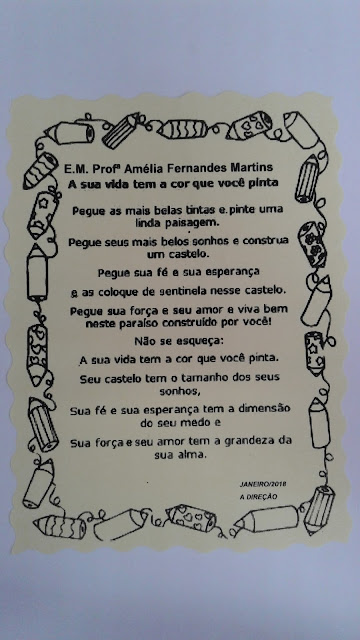 E.M. Profª Amélia Fernandes Martins
A sua vida tem a cor que você pinta
Pegue as mais belas tintas e pinte uma
linda paisagem.
Pegue seus mais belos sonhos e construa
um castelo.
Pegue sua fé e sua esperança
e as coloque de sentinela nesse castelo.
Pegue sua força e seu amor e viva bem
neste paraíso construído por você!
Não se esqueça:
A sua vida tem a cor que você pinta.
Seu castelo tem o tamanho dos seus
sonhos,
Sua fé e sua esperança tem a dimensão
do seu medo e
Sua força e seu amor tem a grandeza da
sua alma.
JANEIRO/2018
A DIREÇÃO